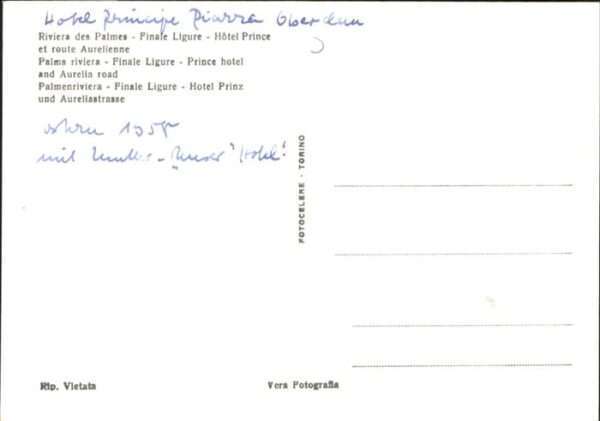 Hotel principe Piazza Oberdan
Riviera des Palmes - Finale Ligure - Hôtel Prince
et route Aurelienne
Palms riviera - Finale Ligure - Prince hotel
and Aurelia road
Palmenriviera - Finale Ligure - Hotel Prinz
und Aureliastrasse
Ostern 1958
mit Mutter - "Unser Hotel"!
FOTOCELERE - TORINO
Rip. Vietata
Vera Fotografia